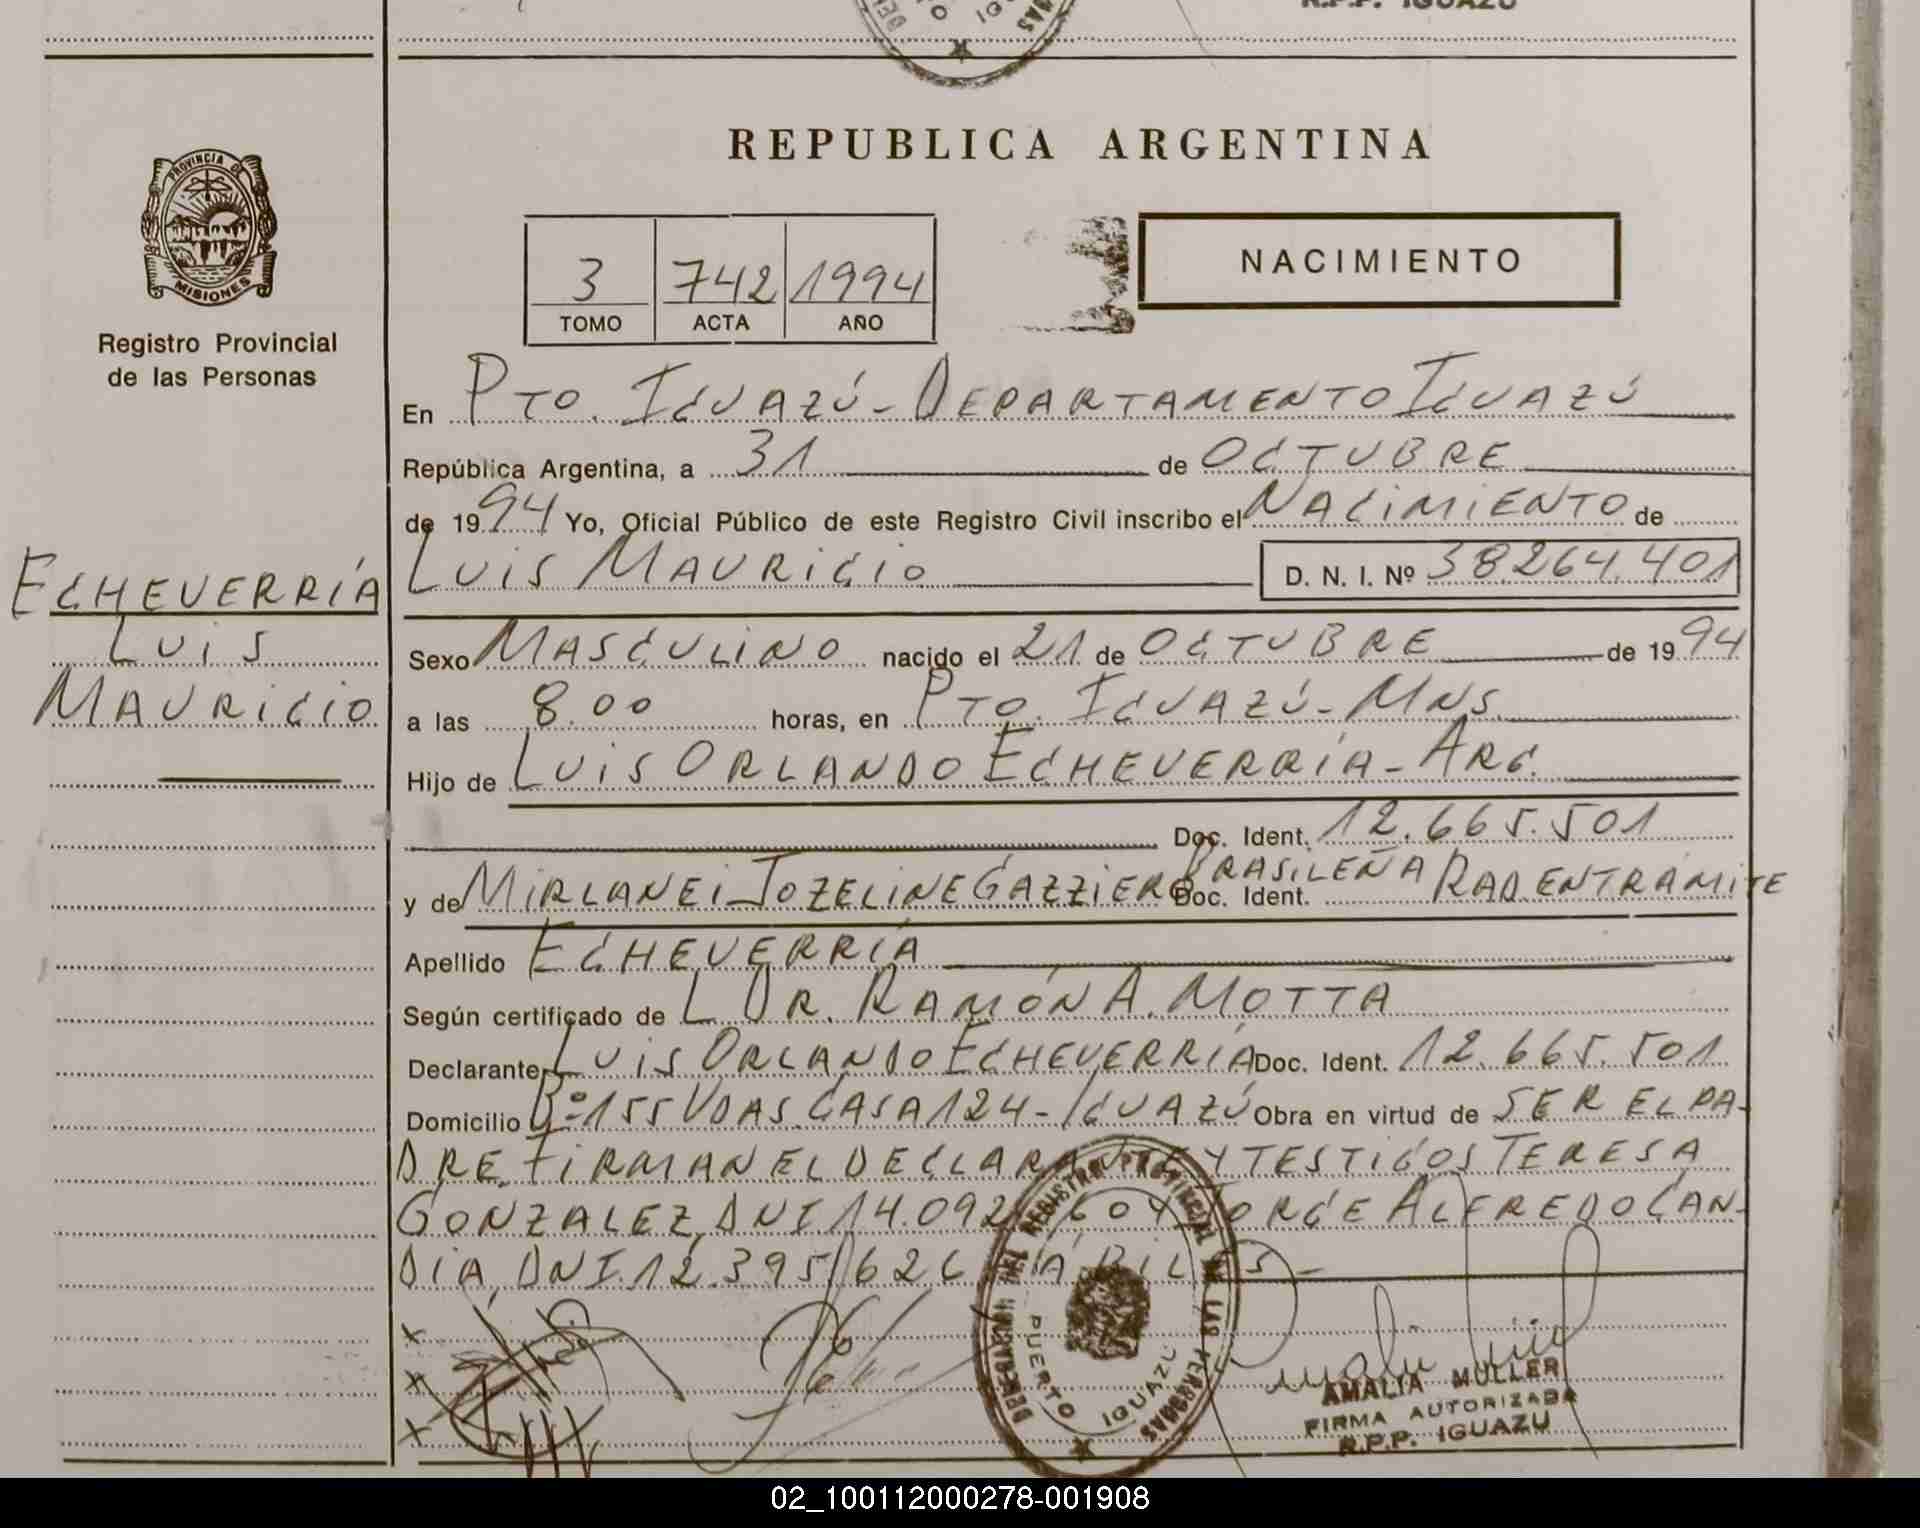 R.P.P. IGUAZU
REPUBLICA ARGENTINA
PROVINCIA DE
MISIONES
Registro Provincial
de las Personas
3 742 1994
TOMO ACTA AÑO
NACIMIENTO
En Pto. Iguazú - Departamento Iguazú
República Argentina, a 31 de Octubre
de 1994 Yo, Oficial Público de este Registro Civil inscribo el Nacimiento de
Luis Mauricio D. N. I. Nº 38.264.401
Echeverría
Luis
Mauricio
Sexo Masculino nacido el 21 de Octubre de 1994
a las 8.00 horas, en Pto. Iguazú - Mns.
Hijo de Luis Orlando Echeverría - Arg.
Doc. Ident. 12.665.501
y de Mirlanei Jozeline Gazziero Brasileña Doc. Ident. Rad. en trámite
Apellido Echeverría
Según certificado de L Dr. Ramón A. Motta
Declarante Luis Orlando Echeverría Doc. Ident. 12.665.501
Domicilio Bº 155 Vdas. Casa 124 - Iguazú Obra en virtud de ser el pa-
dre. Firman el declarante y testigos Teresa
Gonzalez, DNI 14.092.604 Jorge Alfredo Can-
dia, DNI. 12.395.626 Hábiles -
x
x
x
REGISTRO PROVINCIAL DE LAS PERSONAS
PUERTO IGUAZU
AMALIA MULLER
FIRMA AUTORIZADA
R.P.P. IGUAZU
02_100112000278-001908